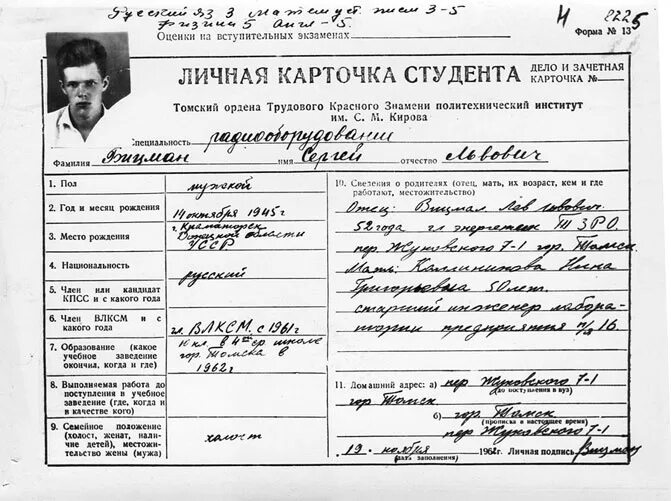 Русский яз 3 матем уст. писм 3-5
Физика 5 Англ - 5.
Оценки на вступительных экзаменах
Н 8225
Форма № 13
ЛИЧНАЯ КАРТОЧКА СТУДЕНТА
ДЕЛО И ЗАЧЕТНАЯ
КАРТОЧКА №
Томский ордена Трудового Красного Знамени политехнический институт
им. С. М. Кирова
Специальность радиооборудовании
Фамилия Вицман имя Сергей отчество Львович
1. Пол мужской
2. Год и месяц рождения 14 октября 1945 г
3. Место рождения г. Краматорск Донецкой области УССР
4. Национальность русский
5. Член или кандидат
КПСС и с какого года
6. Член ВЛКСМ и с
какого года чл. ВЛКСМ. с 1961 г
7. Образование (какое
учебное заведение
окончил, когда и где)
10 кл. в 4ой ср школе
гор. Томска в
1962 г
8. Выполняемая работа до
поступления в учебное
заведение (где, когда и
в качестве кого)
9. Семейное положение
(холост, женат, налич-
ие детей), местожи-
тельство жены (мужа)
холост
10. Сведения о родителях (отец, мать, их возраст, кем и где
работают, местожительство)
Отец: Вицман Лев Львович.
52 года гл энергетик ТЭЗРО.
пер. Жуковского 7-1 гор. Томск
Мать: Калликова Нина
Григорьевна 50 лет.
старший инженер лабора-
тории предприятия п/я 16.
11. Домашний адрес: а) пер Жуковского 7-1
(до поступления в вуз)
гор Томск
б) гор. Томск
(прописка в настоящее время)
пер. Жуковского 7-1
19. ноября 196 г. Личная подпись Вицман
(дата заполнения)